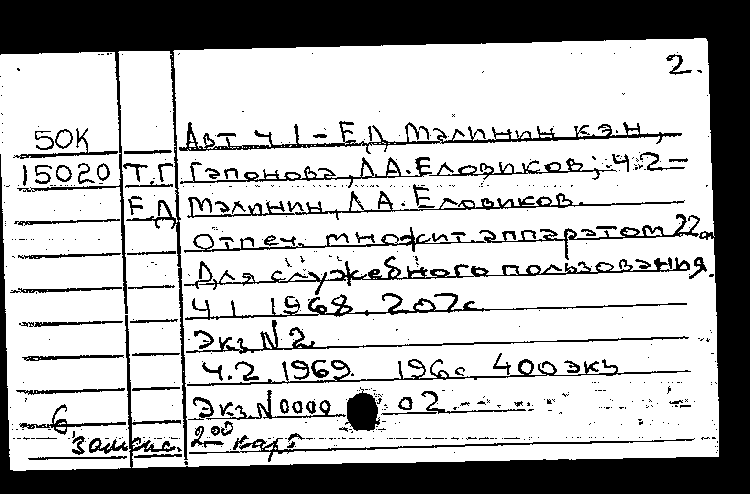 2.
50К Авт ч 1 - Е.Д. Малинин к.э.н.,
15020 Т.Г. Гапонова, Л.А. Еловиков; ч.2 -
Е.Д. Малинин, Л.А. Еловиков.
Отпеч. множит. аппаратом 22 см
Для служебного пользования.
Ч.1. 1968. 207с
Экз. N 2.
Ч.2. 1969. 196с. 400 экз
Экз N 0000 02
6
200 карт